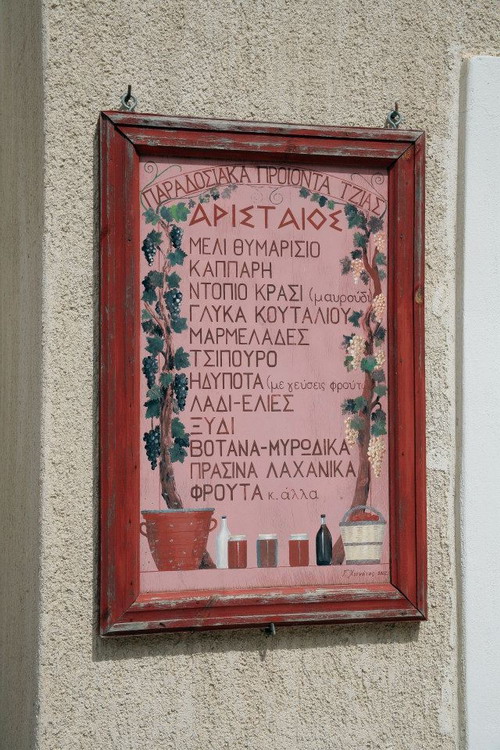 ΠΑΡΑΔΟΣΙΑΚΑ ΠΡΟΪΟΝΤΑ ΤΖΙΑΣ
ΑΡΙΣΤΑΙΟΣ
ΜΕΛΙ ΘΥΜΑΡΙΣΙΟ
ΚΑΠΠΑΡΗ
ΝΤΟΠΙΟ ΚΡΑΣΙ (μαυρούδι
ΓΛΥΚΑ ΚΟΥΤΑΛΙΟΥ
ΜΑΡΜΕΛΑΔΕΣ
ΤΣΙΠΟΥΡΟ
ΗΔΥΠΟΤΑ (με γεύσεις φρούτ
ΛΑΔΙ-ΕΛΙΕΣ
ΞΥΔΙ
ΒΟΤΑΝΑ-ΜΥΡΩΔΙΚΑ
ΠΡΑΣΙΝΑ ΛΑΧΑΝΙΚΑ
ΦΡΟΥΤΑ κ. άλλα